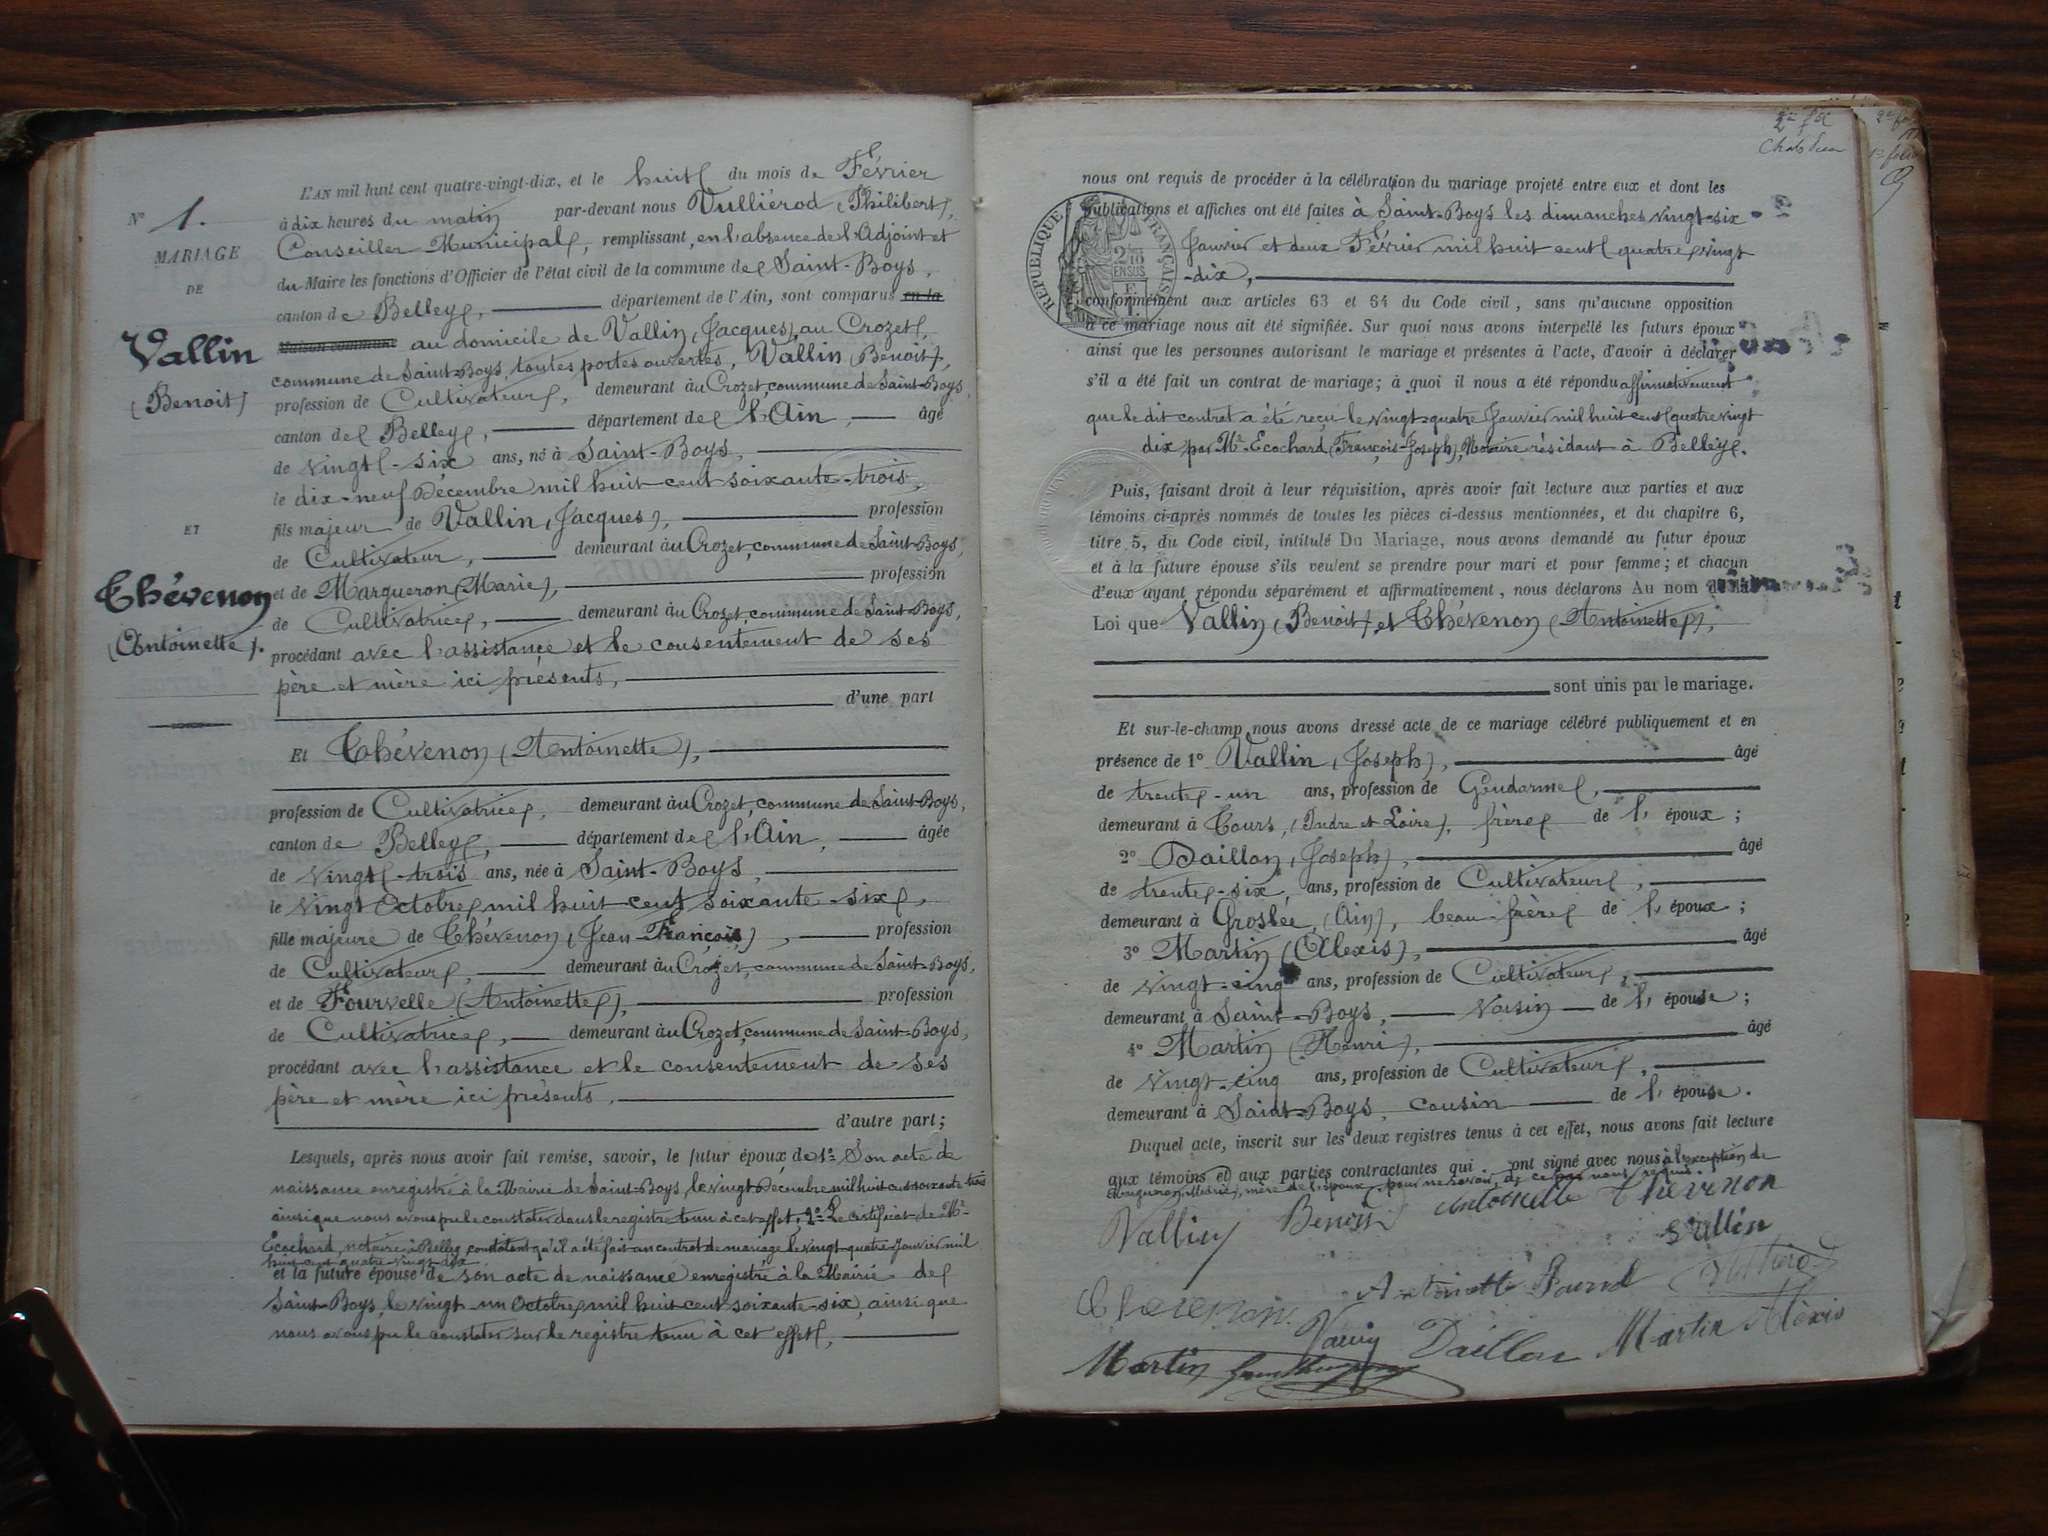 N° 1.
MARIAGE
DE
Vallin
(Benoit)
ET
Thévenon
(Antoinette).
L'AN mil huit cent quatre-vingt-dix, et le huit du mois de Février
à dix heures du matin par-devant nous Vulliérod (Philibert),
Conseiller Municipal, remplissant, en l'absence de l'Adjoint et
du Maire les fonctions d'Officier de l'état civil de la commune de Saint-Boys,
canton de Belley, département de l'Ain, sont comparus en la
Maison commune au domicile de Vallin (Jacques) au Crozet,
commune de Saint-Boys, toutes portes ouvertes, Vallin (Benoit),
profession de Cultivateur, demeurant àu Crozet, commune de Saint-Boys,
canton de Belley, département de l'Ain, âgé
de vingt-six ans, né à Saint-Boys,
le dix-neuf Décembre mil huit cent soixante-trois,
fils majeur de Vallin (Jacques), profession
de Cultivateur, demeurant àu Crozet, commune de Saint-Boys,
et de Margueron (Marie), profession
de Cultivatrice, demeurant àu Crozet, commune de Saint-Boys,
procédant avec l'assistance et le consentement de ses
père et mère ici présents,
d'une part
Et Thévenon (Antoinette),
profession de Cultivatrice, demeurant àu Crozet, commune de Saint-Boys,
canton de Belley, département de l'Ain, âgée
de vingt-trois ans, née à Saint-Boys,
le vingt Octobre mil huit cent soixante-six,
fille majeure de Thévenon (Jean-François), profession
de Cultivateur, demeurant àu Crozet, commune de Saint-Boys,
et de Fourvelle (Antoinette), profession
de Cultivatrice, demeurant àu Crozet, commune de Saint-Boys,
procédant avec l'assistance et le consentement de ses
père et mère ici présents,
d'autre part;
Lesquels, après nous avoir fait remise, savoir, le futur époux de 1° Son acte de
naissance enregistré à la Mairie de Saint-Boys, le vingt Décembre mil huit cent soixante trois
ainsi que nous avons pu le constater dans le registre tenu à cet effet, 2° Le certificat de Me
Ecochard, notaire à Belley, constatant qu'il a été fait un contrat de mariage le vingt-quatre Janvier mil
huit cent quatre vingt-dix
et la future épouse de son acte de naissance enregistré à la Mairie de
Saint-Boys, le vingt-un Octobre mil huit cent soixante-six, ainsi que
nous avons pu le constater sur le registre tenu à cet effet,
nous ont requis de procéder à la célébration du mariage projeté entre eux et dont les
publications et affiches ont été faites à Saint-Boys les dimanches vingt-six
Janvier et deux Février mil huit cent quatre vingt
-dix,
RÉPUBLIQUE FRANÇAISE
2/10 EN SUS
conformément aux articles 63 et 64 du Code civil, sans qu'aucune opposition
à ce mariage nous ait été signifiée. Sur quoi nous avons interpellé les futurs époux
ainsi que les personnes autorisant le mariage et présentes à l'acte, d'avoir à déclarer
s'il a été fait un contrat de mariage; à quoi il nous a été répondu affirmativement
que le dit contrat a été reçu le vingt-quatre Janvier mil huit cent quatre vingt
dix par Me Ecochard (François-Joseph), Notaire résidant à Belley.
Puis, faisant droit à leur réquisition, après avoir fait lecture aux parties et aux
témoins ci-après nommés de toutes les pièces ci-dessus mentionnées, et du chapitre 6,
titre 5, du Code civil, intitulé Du Mariage, nous avons demandé au futur époux
et à la future épouse s'ils veulent se prendre pour mari et pour femme; et chacun
d'eux ayant répondu séparément et affirmativement, nous déclarons Au nom de la
Loi que Vallin (Benoit) et Thévenon (Antoinette),
sont unis par le mariage.
Et sur-le-champ nous avons dressé acte de ce mariage célébré publiquement et en
présence de 1° Vallin (Joseph), âgé
de trente-un ans, profession de Gendarme,
demeurant à Tours, (Indre et Loire), frère de l' époux;
2° Daillon (Joseph), âgé
de trente-six ans, profession de Cultivateur,
demeurant à Groslée, (Ain), beau-frère de l' époux;
3° Martin (Alexis), âgé
de vingt-cinq ans, profession de Cultivateur,
demeurant à Saint-Boys, voisin de l' épouse;
4° Martin (Henri), âgé
de vingt-cinq ans, profession de Cultivateur,
demeurant à Saint-Boys, cousin de l' épouse.
Duquel acte, inscrit sur les deux registres tenus à cet effet, nous avons fait lecture
aux témoins et aux parties contractantes qui ont signé avec nous à l'exception de
Margueron (Marie), mère de l'époux, pour ne savoir, de ce par nous requis.
Vallin Benoit Antoinette Thévenon
Vallin
Antoinette
Thevenon
Daillon Martin Alexis
Martin